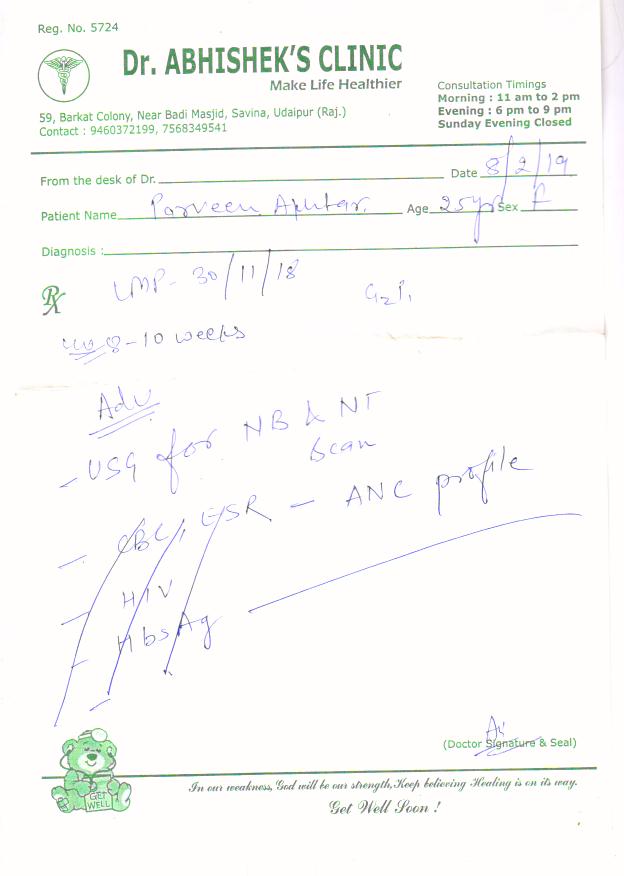 Reg. No. 5724
Dr. ABHISHEK'S CLINIC
Make Life Healthier
59, Barkat Colony, Near Badi Masjid, Savina, Udaipur (Raj.)
Contact : 9460372199, 7568349541
Consultation Timings
Morning : 11 am to 2 pm
Evening : 6 pm to 9 pm
Sunday Evening Closed
From the desk of Dr. Date 8/2/19
Patient Name Parveen Age 25 yrs Sex F
Diagnosis :
Rx LMP - 30/11/18 G2P1
8-10 weeks
Adv
- USG for NB & NT
Scan
- CBC, ESR - ANC profile
- HIV
- HbsAg
-
(Doctor Signature & Seal)
GET
WELL
In our weakness, God will be our strength, Keep believing Healing is on its way.
Get Well Soon !